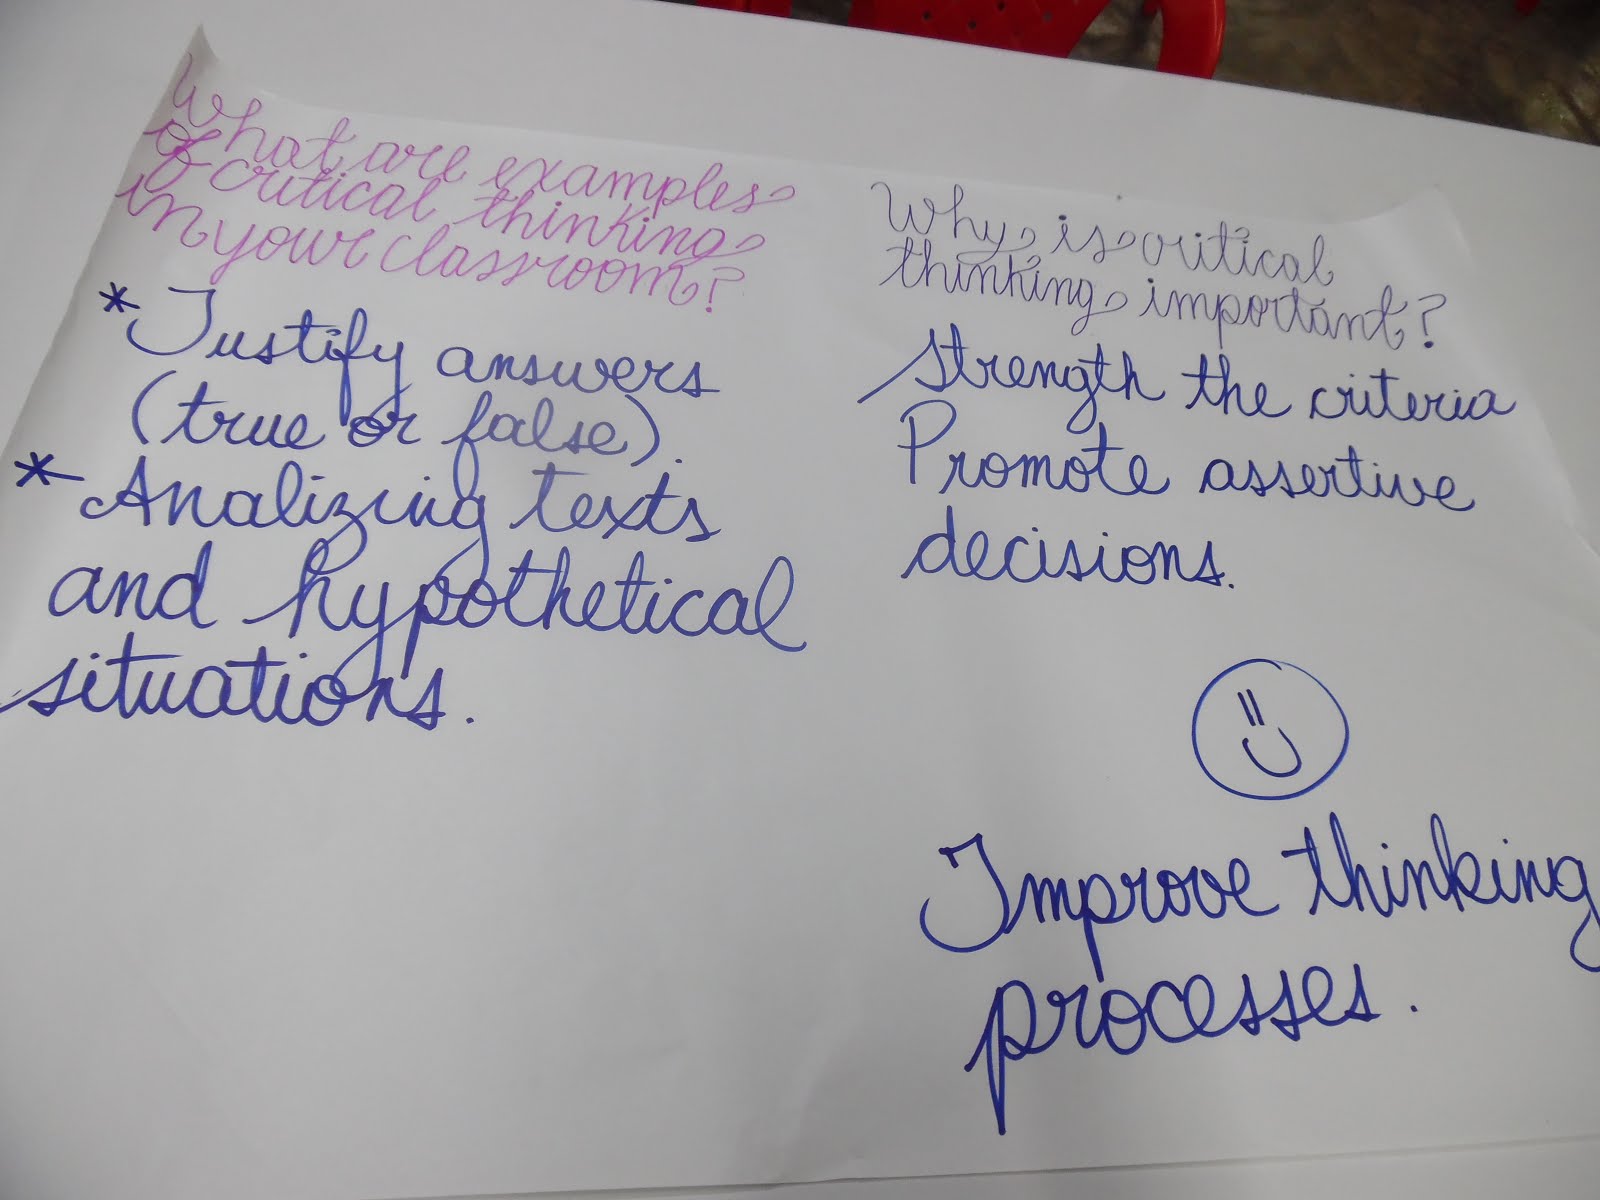 What are examples
of critical thinking
in your classroom?
* Justify answers
(true or false).
* Analizing texts
and hypothetical
situations.
Why is critical
thinking important?
strength the criteria
Promote assertive
decisions.
Improve thinking
processes.